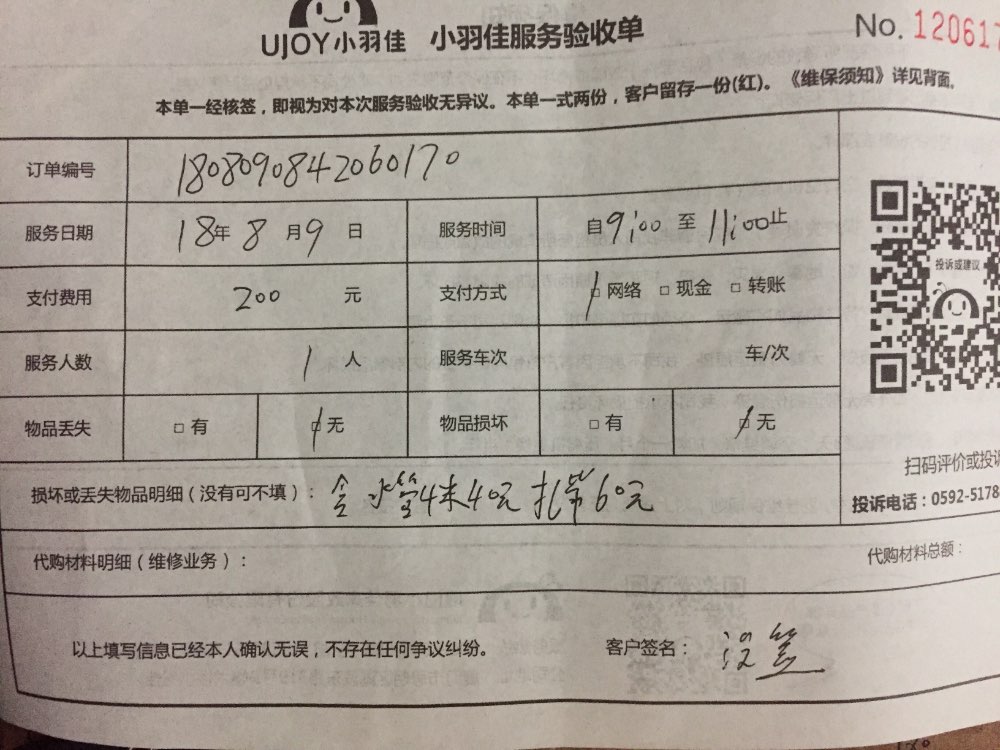 UJOY小羽佳 小羽佳服务验收单 No. 120617
本单一经核签，即视为对本次服务验收无异议。本单一式两份，客户留存一份(红)。《维保须知》详见背面。
订单编号 1808090842060170
服务日期 18年 8 月 9 日 服务时间 自 9:00 至 11:00 止
支付费用 200 元 支付方式 □ 网络 □ 现金 □ 转账
投诉或建议
服务人数 1 人 服务车次 车/次
物品丢失 □ 有 □ 无 物品损坏 □ 有 □ 无
扫码评价或投诉
损坏或丢失物品明细（没有可不填）： 含 水管4米40元 扎带60元
投诉电话：0592-5178
代购材料明细（维修业务）： 代购材料总额：
以上填写信息已经本人确认无误，不存在任何争议纠纷。 客户签名：